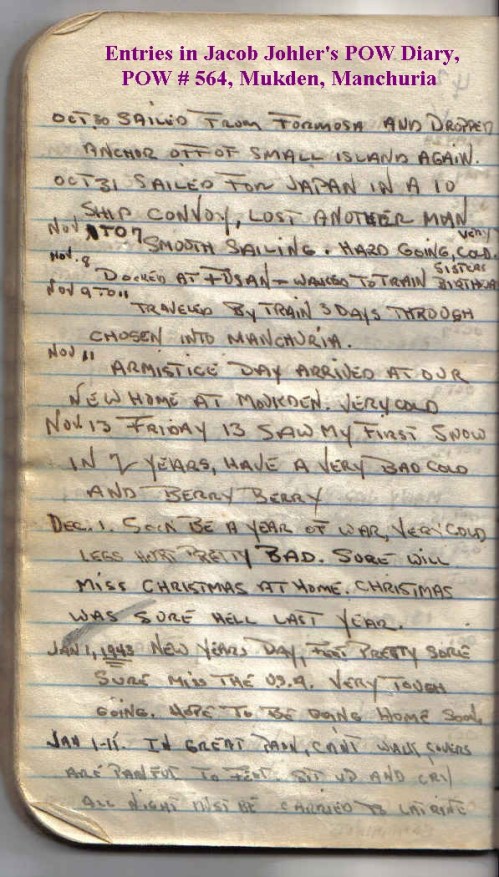 Entries in Jacob Johler's POW Diary,
POW # 564, Mukden, Manchuria
OCT 30 SAILED FROM FORMOSA AND DROPPED
ANCHOR OFF OF SMALL ISLAND AGAIN.
OCT 31 SAILED FOR JAPAN IN A 10
SHIP CONVOY, LOST ANOTHER MAN
NOV 1 TO 7 SMOOTH SAILING. HARD GOING, VERY COLD.
NOV. 8 DOCKED AT FUSAN - WALKED TO TRAIN SISTERS BIRTHDAY
NOV 9 TO 11 TRAVELED BY TRAIN 3 DAYS THROUGH
CHOSEN INTO MANCHURIA.
NOV 11 ARMISTICE DAY ARRIVED AT OUR
NEW HOME AT MOUKDEN. VERY COLD
NOV. 13 FRIDAY 13 SAW MY FIRST SNOW
IN 2 YEARS, HAVE A VERY BAD COLD
AND BERRY BERRY
DEC. 1. SOON BE A YEAR OF WAR, VERY COLD
LEGS HURT PRETTY BAD. SURE WILL
MISS CHRISTMAS AT HOME. CHRISTMAS
WAS SURE HELL LAST YEAR.
JAN 1, 1943 NEW YEARS DAY, FEET PRETTY SORE
SURE MISS THE U.S.A. VERY TOUGH
GOING. HOPE TO BE GOING HOME SOON.
JAN 1-15. IN GREAT PAIN, CANT WALK, COVERS
ARE PAINFUL TO FEET. SIT UP AND CRY
ALL NIGHT MUST BE CARRIED TO LATRINE